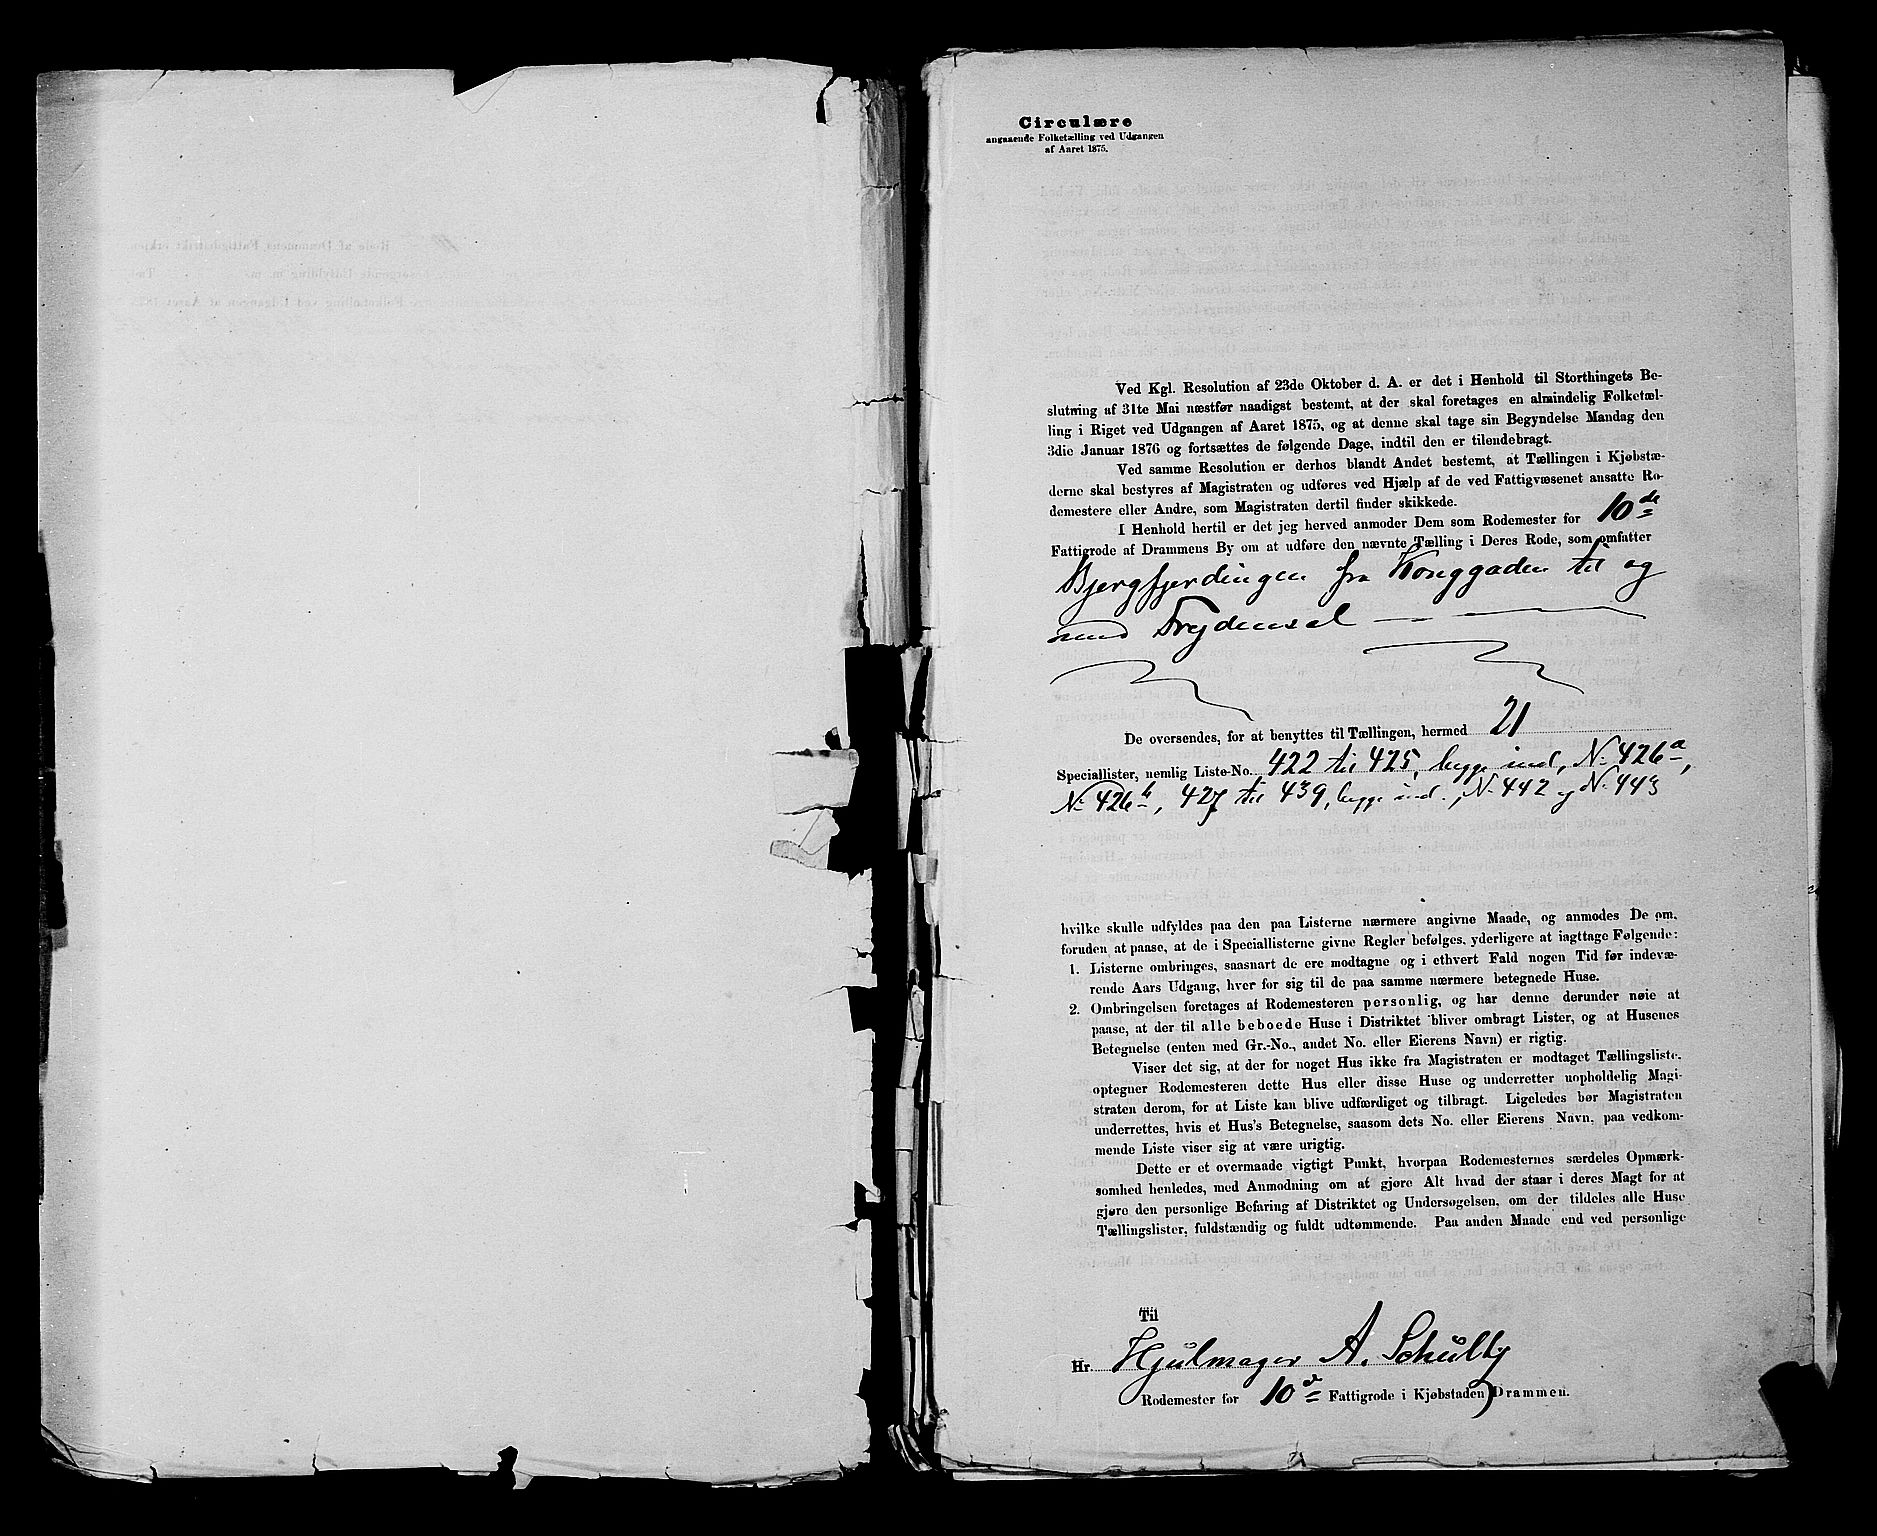 Circulære
angaaende Folketælling ved Udgangen
af Aaret 1875.
Ved Kgl. Resolution af 23de Oktober d. A. er det i Henhold til Storthingets Be-
slutning af 31te Mai næstfør naadigst bestemt, at der skal foretages en almindelig Folketæl-
ling i Riget ved Udgangen af Aaret 1875, og at denne skal tage sin Begyndelse Mandag den
3die Januar 1876 og fortsættes de følgende Dage, indtil den er tilendebragt.
Ved samme Resolution er derhos blandt Andet bestemt, at Tællingen i Kjøbstæ-
derne skal bestyres af Magistraten og udføres ved Hjælp af de ved Fattigvæsenet ansatte Ro-
demestere eller Andre, som Magistraten dertil finder skikkede.
I Henhold hertil er det jeg herved anmoder Dem som Rodemester for 10de
Fattigrode af Drammens By om at udføre den nævnte Tælling i Deres Rode, som omfatter
Bjergfjerdingen fra Konggaden til og
med Frydensal
De oversendes, for at benyttes til Tællingen, hermed 21
Speciallister, nemlig Liste-No. 422 til 425, begge ind, No 426a,
No 426b, 427 til 439, begge ind., No 442 og No 443
hvilke skulle udfyldes paa den paa Listerne nærmere angivne Maade, og anmodes De om,
foruden at paase, at de i Speciallisterne givne Regler befølges, yderligere at iagttage Følgende:
1. Listerne ombringes, saasnart de ere modtagne og i ethvert Fald nogen Tid før indevæ-
rende Aars Udgang, hver for sig til de paa samme nærmere betegnede Huse.
2. Ombringelsen foretages af Rodemesteren personlig, og har denne derunder nøie at
paase, at der til alle beboede Huse i Distriktet bliver ombragt Lister, og at Husenes
Betegnelse (enten med Gr.-No., andet No. eller Eierens Navn) er rigtig.
Viser det sig, at der for noget Hus ikke fra Magistraten er modtaget Tællingsliste,
optegner Rodemesteren dette Hus eller disse Huse og underretter uopholdelig Magi-
straten derom, for at Liste kan blive udfærdiget og tilbragt. Ligeledes bør Magistraten
underrettes, hvis et Hus's Betegnelse, saasom dets No. eller Eierens Navn, paa vedkom-
mende Liste viser sig at være urigtig.
Dette er et overmaade vigtigt Punkt, hvorpaa Rodemesternes særdeles Opmærk-
somhed henledes, med Anmodning om at gjøre Alt hvad der staar i deres Magt for at
gjøre den personlige Befaring af Distriktet og Undersøgelsen, om der tildeles alle Huse
Tællingslister, fuldstændig og fuldt udtømmende. Paa anden Maade end ved personlige
Til
Hr. Hjulmager A. Schulty
Rodemester for 10de Fattigrode i Kjøbstaden Drammen.